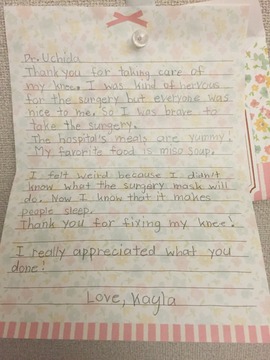 Dr. Uchida
Thank you for taking care of
my knee. I was kind of nervous
for the surgery but everyone was
nice to me. So I was brave to
take the surgery.
The hospital's meals are yummy!
My favorite food is miso soup.
I felt weird because I didn't
know what the surgery mask will
do. Now I know that it makes
people sleep.
Thank you for fixing my knee!
I really appreciated what you
done!
Love, Kayla